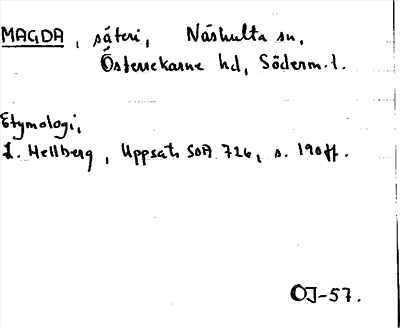 MAGDA, säteri, Näshulta sn,
Österrekarne hd, Söderm.l.
Etymologi,
L. Hellberg, Uppsats SOA 726, s. 190ff.
OJ-57.